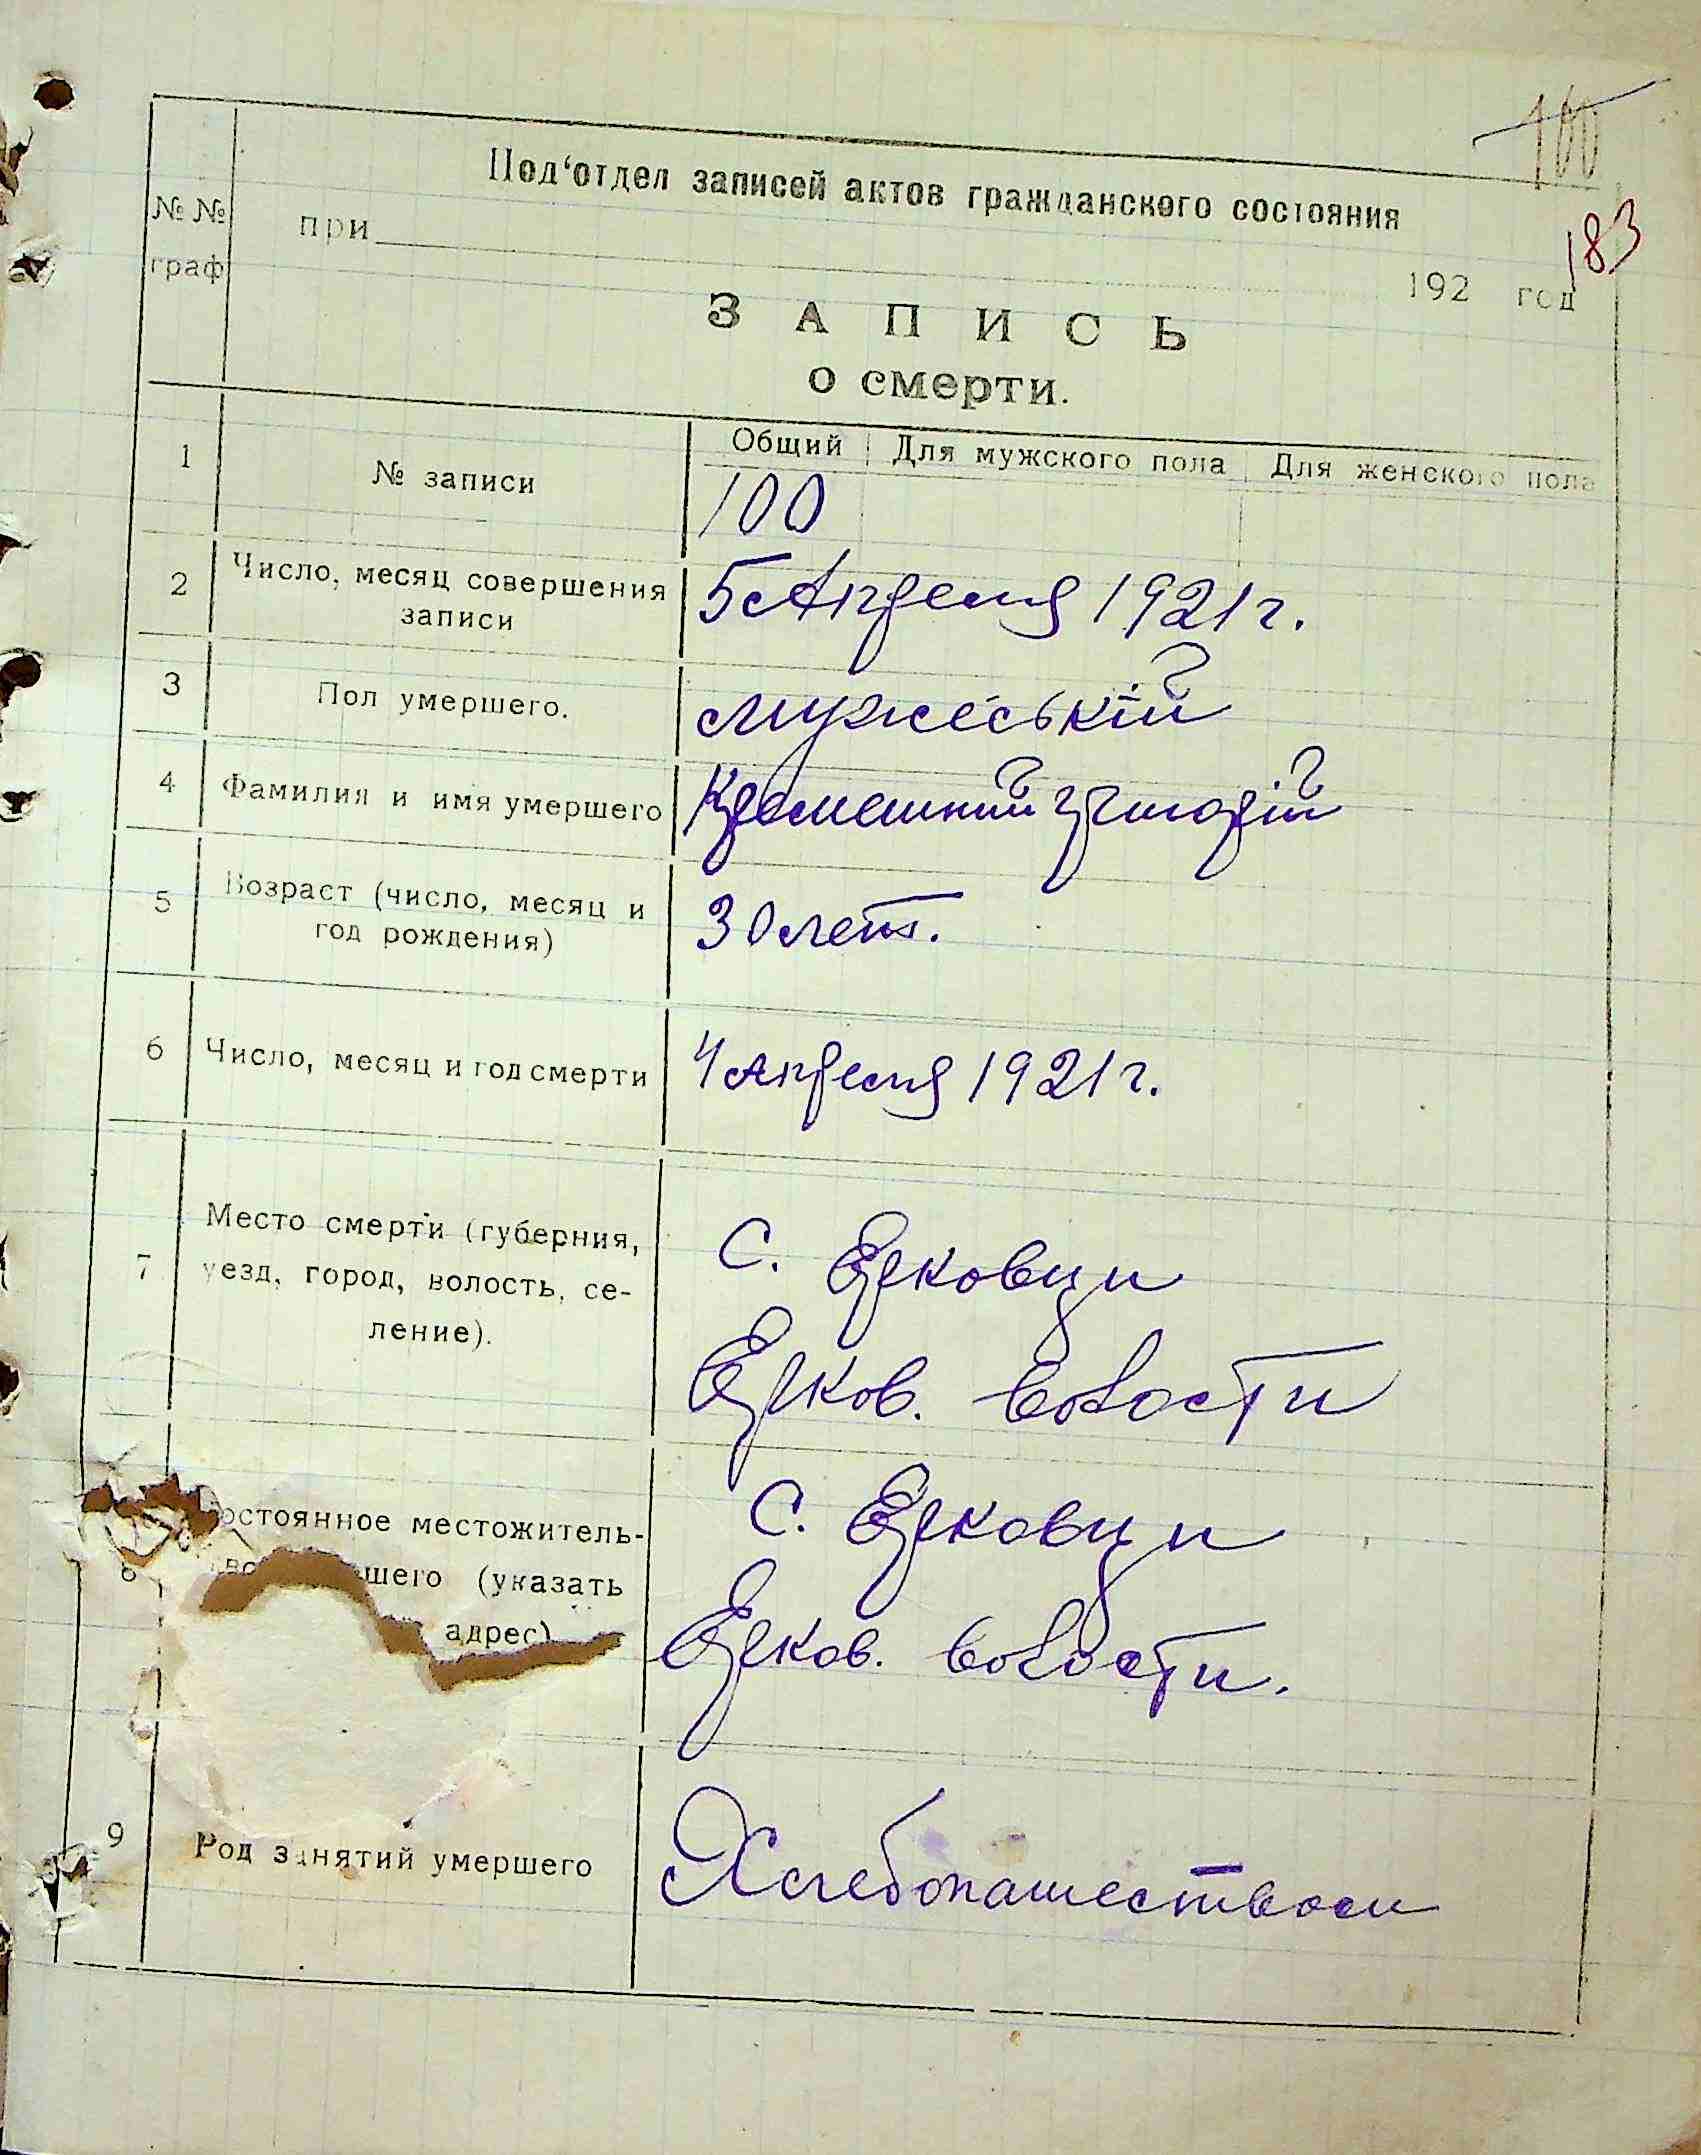 100
183
Под‘отдел записей актов гражданского состояния
№ №
граф
при 192 год
ЗАПИСЬ
о смерти.
1 № записи
Общий Для мужского пола Для женского пола
100
2 Число, месяц совершения
записи
5 Апреля 1921 г.
3 Пол умершего.
мужеській
4 Фамилия и имя умершего
Григорій
5 Возраст (число, месяц и
год рождения)
30 лет.
6 Число, месяц и год смерти
4 апреля 1921 г.
7 Место смерти (губерния,
уезд, город, волость, се-
ление).
с. Ерковци
Ерков. волости
8 постоянное местожитель-
шего (указать
адрес)
с. Ерковци
Ерков. волости.
9 Род занятий умершего
Хлебопашеством